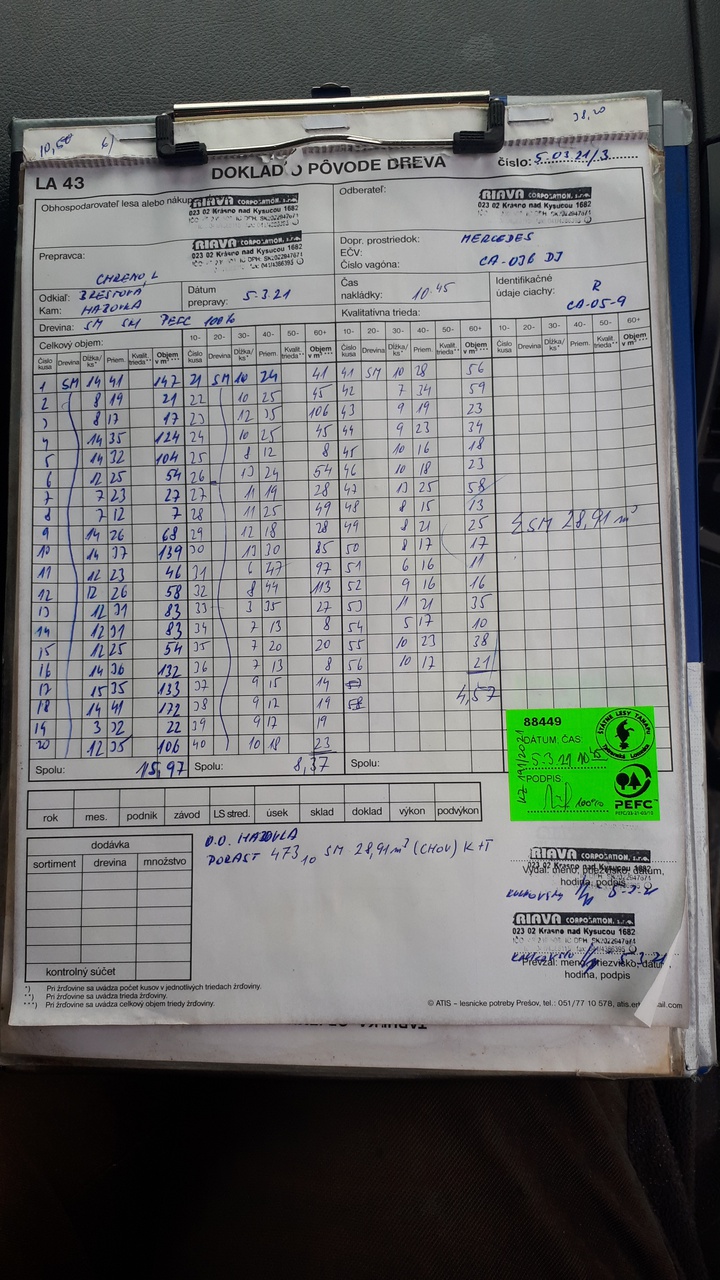 10,50 6)
LA 43 DOKLAD O PÔVODE DREVA číslo: 5.03.21/3
Obhospodarovateľ lesa alebo nákup
RIAVA CORPORATION, s.r.o.
023 02 Krásno nad Kysucou 1682
Odberateľ:
RIAVA CORPORATION, s.r.o.
023 02 Krásno nad Kysucou 1682
Prepravca:
RIAVA CORPORATION, s.r.o.
023 02 Krásno nad Kysucou 1682
Dopr. prostriedok: MERCEDES
EČV:
Číslo vagóna: CA-036 DJ
Odkiaľ:
Kam:
Dátum prepravy: 5.3.21
Čas nakládky: 10 45
Identifikačné údaje ciachy: R
CA-05-9
Drevina: SM SM PEFC 100%
Kvalitatívna trieda:
Celkový objem: 10- 20- 30- 40- 50- 60+ 10- 20- 30- 40- 50- 60+ 10- 20- 30- 40- 50- 60+
Číslo kusa Drevina Dĺžka/ks* Priem. Kvalit. trieda** Objem v m³ *** Číslo kusa Drevina Dĺžka/ks* Priem. Kvalit. trieda** Objem v m³ *** Číslo kusa Drevina Dĺžka/ks* Priem. Kvalit. trieda** Objem v m³ *** Číslo kusa Drevina Dĺžka/ks* Priem. Kvalit. trieda** Objem v m³ ***
1 SM 14 41 147 21 SM 10 24 41 41 SM 10 28 56
2 8 19 21 22 10 25 45 42 7 34 59
3 8 17 17 23 12 35 106 43 9 19 23
4 14 35 124 24 10 25 45 44 9 23 34
5 14 32 104 25 8 12 8 45 10 16 18
6 12 25 54 26 13 24 54 46 10 18 23
7 7 23 27 27 11 19 28 47 13 25 58
8 7 12 7 28 11 25 49 48 8 15 13
9 14 26 68 29 12 18 28 49 8 21 25
ΣSM 28,91 m³
10 14 37 139 30 13 30 85 50 8 17 17
11 12 23 46 31 6 47 97 51 6 16 11
12 12 26 58 32 8 44 113 52 9 16 16
13 12 31 83 33 3 35 27 53 11 21 35
14 12 31 83 34 7 13 8 54 5 17 10
15 12 25 54 35 7 20 20 55 10 23 38
16 14 36 132 36 7 13 8 56 10 17 21
17 15 35 133 37 9 15 14 57 4,57
18 14 41 172 38 9 12 19 58
19 3 32 22 39 9 17 19
20 12 35 106 40 10 18 23
Spolu: 15,97 Spolu: 8,37 Spolu:
88449
DÁTUM: ČAS:
5.3.21 10 45
PODPIS:
100%
ŠTÁTNE LESY TANAPu
Tatranská Lomnica
PEFC
rok mes. podnik závod LS stred. úsek sklad doklad výkon podvýkon
dodávka
sortiment drevina množstvo
kontrolný súčet
PORAST 473 10 SM 28,91 m³ (CHOV) K+T
RIAVA CORPORATION, s.r.o.
023 02 Krásno nad Kysucou 1682
Vydal: meno, priezvisko, dátum,
hodina, podpis
RIAVA CORPORATION, s.r.o.
023 02 Krásno nad Kysucou 1682
Prevzal: meno, priezvisko, dátum
hodina, podpis
*) Pri žrďovine sa uvádza počet kusov v jednotlivých triedach žrďoviny.
**) Pri žrďovine sa uvádza trieda žrďoviny.
***) Pri žrďovine sa uvádza celkový objem triedy žrďoviny.
© ATIS – lesnícke potreby Prešov, tel.: 051/77 10 578,